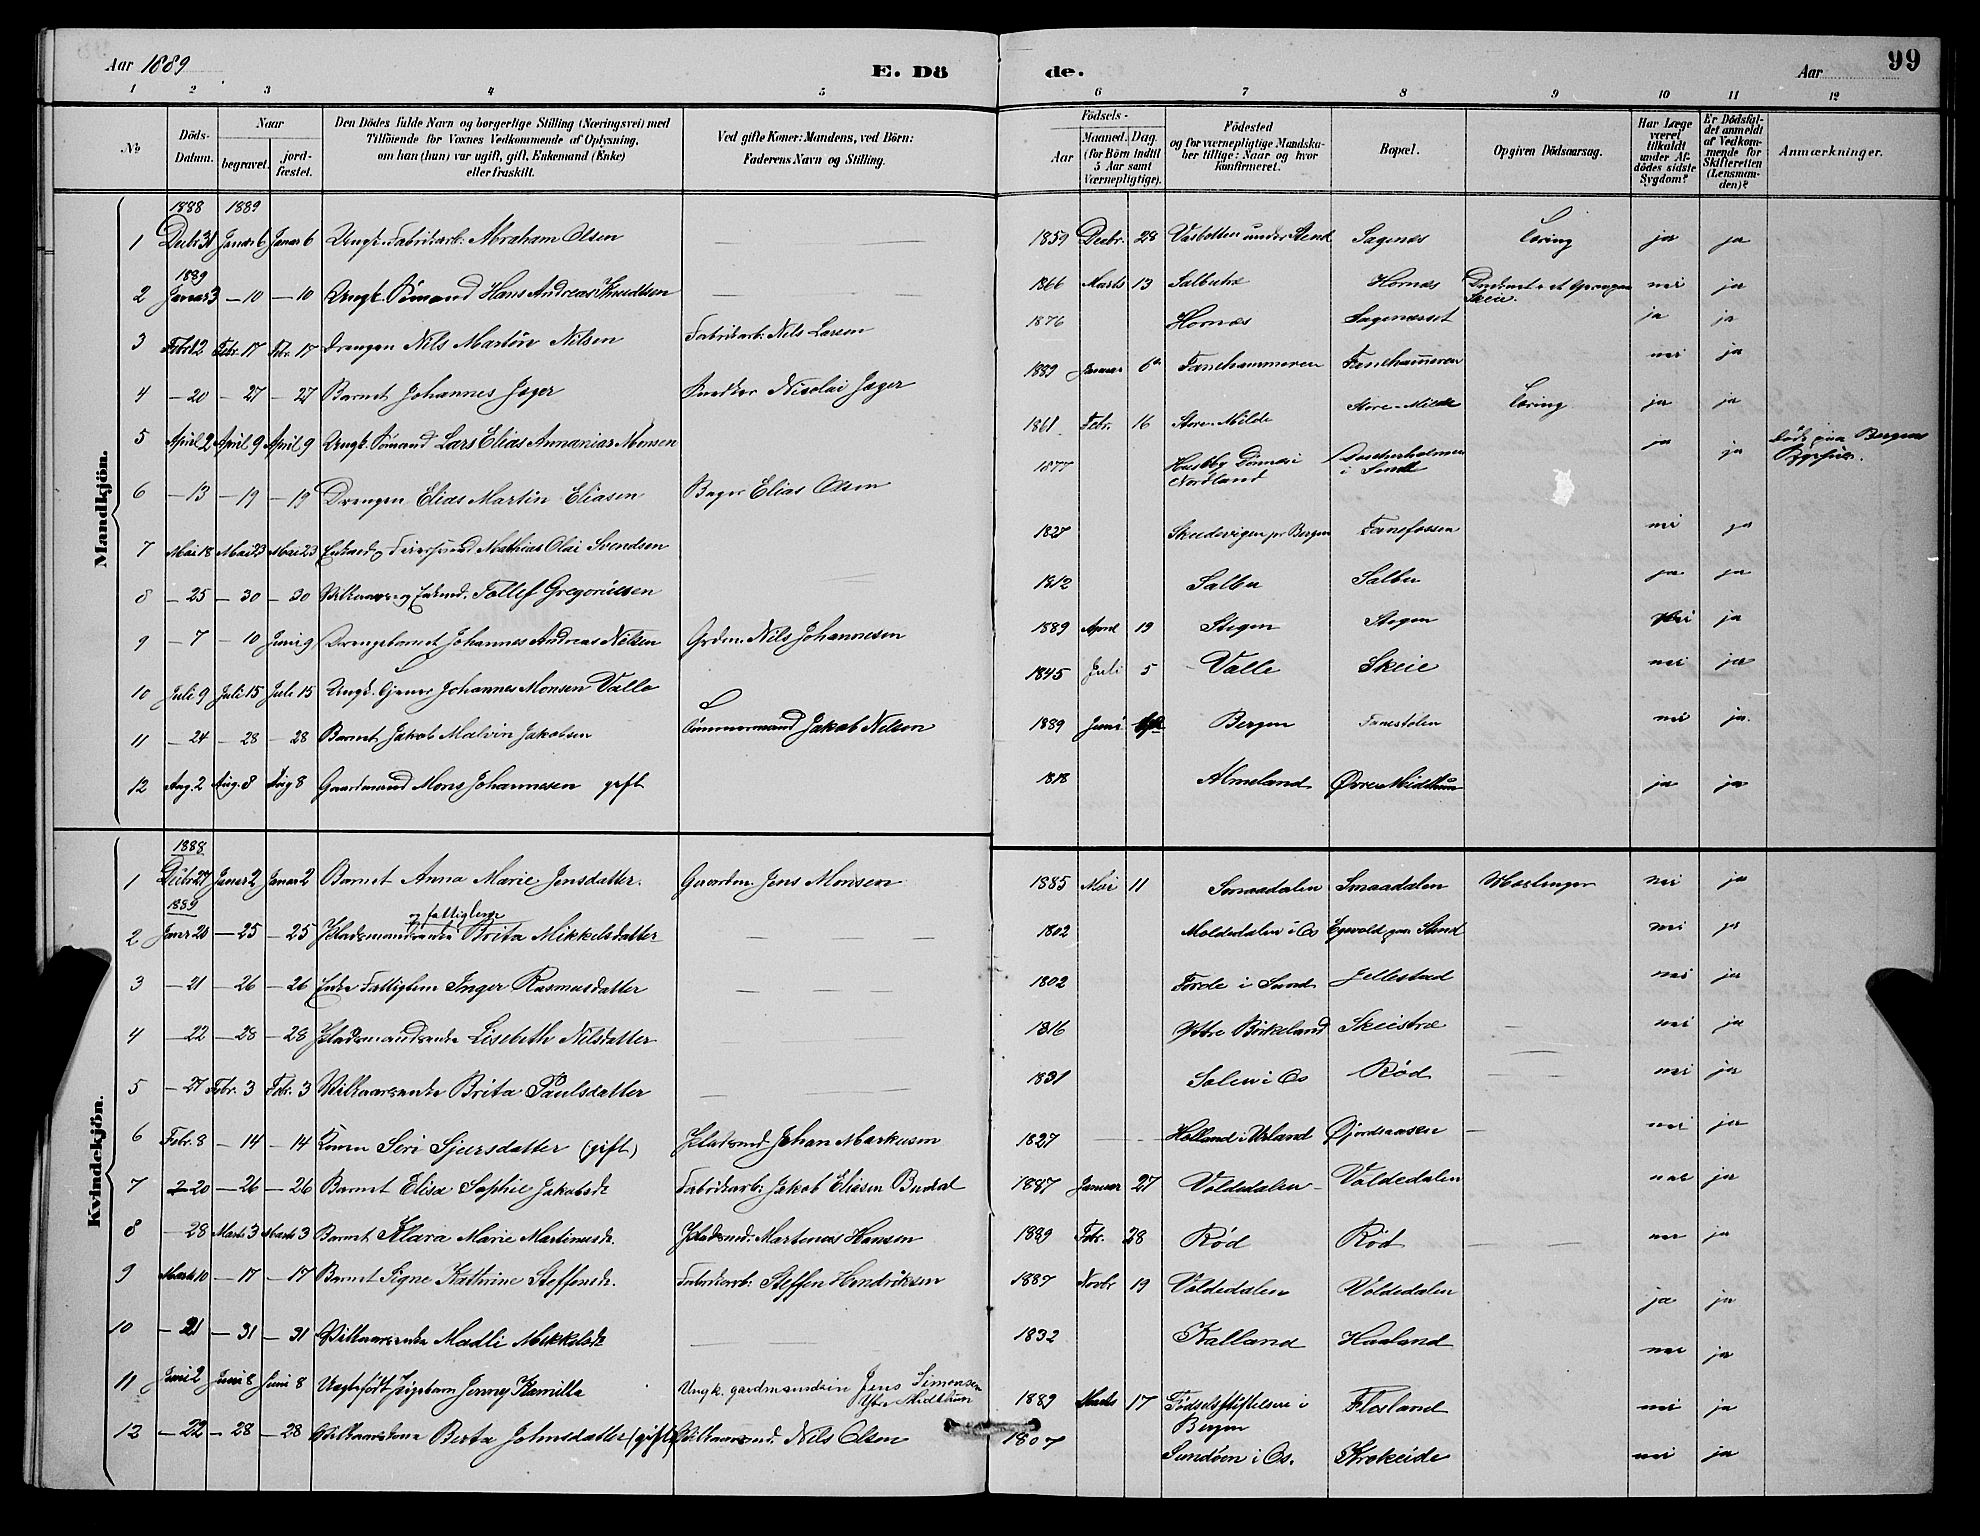 Aar 1889
E. Dö
de.
Aar
99
1 2 3 4 5 6 7 8 9 10 11 12
No
Döds-Datum.
Naar
begravet.
jord-fæstet.
Den Dödes fulde Navn og borgerlige Stilling (Næringsvei) med
Tilföiende for Voxnes Vedkommende af Oplysning,
om han (hun) var ugift, gift, Enkemand (Enke)
eller fraskilt.
Ved gifte Koner: Mandens, ved Börn:
Faderens Navn og Stilling.
Födsels-
Aar
Maaned. Dag.
(for Börn indtil
5 Aar samt
Værnepligtige).
Födested
og for værnepligtige Mandska-
ber tillige: Naar og hvor
konfirmeret.
Bopæl.
Opgiven Dödsaarsag.
Har Læge
været
tilkaldt
under Af-
dödes sidste
Sygdom?
Er Dödsfal-
det anmeldt
af Vedkom-
mende for
Skifteretten
(Lensman-
den)?
Anmærkninger.
Mandkjön.
1888 1889
1 Decbr 31 Januar 6 Januar 6 Ungk. Fabrikarb. Abraham Olsen — 1859 Decbr. 28 Vasbotten under Stend Sagenæs Tæring ja ja
1889
2 Januar 3 — 10 — 10 Ungk. Sømand Hans Andreas Knudtsen — 1866 Marts 13 Salbuhø Hornæs nei ja
3 Febr 12 Febr. 17 Febr. 17 Drengen Nils Martin Nilsen Fabrikarb. Nils Larsen 1876 Hornæs Sagenæsset ja ja
4 — 20 — 27 — 27 Barnet Johannes Jæger Snedker Nicolai Jæger 1889 Januar 6 Fanehammeren Fanehammeren nei ja
5 April 2 April 9 April 9 Ungk. Sømand Lars Elias Annanias Monsen 1861 Febr. 16 Store-Milde Store-Milde Tæring ja ja
6 — 13 — 19 — 19 Drengen Elias Martin Eliasen Bager Elias Olsen 1877 Husby Dønnes i Nordland i Sund ja ja Død paa Bergens Sygehus.
7 Mai 18 Mai 23 Mai 23 Mathias Olai Svendsen 1827 Skudevigen pr Bergen Fanefossen nei ja
8 — 25 — 30 — 30 Tollef Gregoriussen 1812 Salbu Salbu ja ja
9 — 7 — 10 Juni 9 Drengebarnet Johannes Andreas Nilsen Grdm. Nils Johannesen 1889 April 19 Stegen Stegen nei ja
10 Juli 9 Juli 15 Juli 15 Ungk. Tjener Johannes Monsen Valle 1845 Juli 5 Valle Skeie nei ja
11 — 24 — 28 — 28 Barnet Jakob Malvin Jakobsen Tømmermand Jakob Nilsen 1889 Juni Bergen Fanestølen nei ja
12 Aug. 2 Aug. 8 Aug 8 Gaardmand Mons Johannesen gift 1818 Almeland Øvre Midthun ja ja
Kvindekjön.
1888
1 Decbr 27 Januar 2 Januar 2 Barnet Anna Marie Jensdatter. Gaardm. Jens Monsen 1885 Mai 11 Smaadalen Smaadalen Mæslinger nei ja
1889
2 Januar 20 — 25 — 25 Pladsmandsenke og fattiglem Brita Mikkelsdatter — — — 1802 Moldedalen i Os Egevold paa Stend nei ja
3 — 21 — 26 — 26 Enke Fattiglem Inger Rasmusdatter — — — 1802 Førde i Sund Jellestad nei ja
4 — 22 — 28 — 28 Pladsmandsenke Lisebeth Nilsdatter — — — 1816 Ytre Birkeland Skeistræ — nei ja
5 — 27 Febr. 3 Febr. 3 Vilkaarsenke Brita Paulsdatter — — 1831 Solen i Os Rød — nei ja
6 Febr. 8 — 14 — 14 Konen Siri Sjursdatter (gift) Pladsmd. Johan Markusen 1827 — — Holland i Urland Fjordsaasen — nei ja
7 — 20 — 26 — 26 Barnet Elisa Sophie Jakobsdr. Fabrikarb. Jakob Eliasen Budal 1887 Januar 27 Voldedalen Voldedalen nei ja
8 — 28 Marts 3 Marts 3 Barnet Klara Marie Martinusdr. Pladsmd. Martinus Hansen 1889 Febr. 28 Rød Rød — — nei ja
9 Marts 10 — 17 — 17 Barnet Signe Kathrine Steffensdr. Fabrikarb. Steffen Hendriksen 1887 Novbr 19 Voldedalen Voldedalen ja ja
10 — 21 — 31 — 31 Vilkaarsenke Madli Mikkelsdr — 1832 Kalland Haaland nei ja
11 Juni 2 Juni 8 Juni 8 Uægtefødt Pigebarn Jenny Kamilla Ungk. gardmandssøn Jens Simonsen Ytre Midthun 1889 Marts 17 Fødselsstiftelsen i Bergen Flesland nei ja
12 — 22 — 28 — 28 Vilkaarskone Berta Johnsdatter (gift) Vilkaarsmd. Nils Olsen 1807 Sundøen i Os. Krokeide nei ja